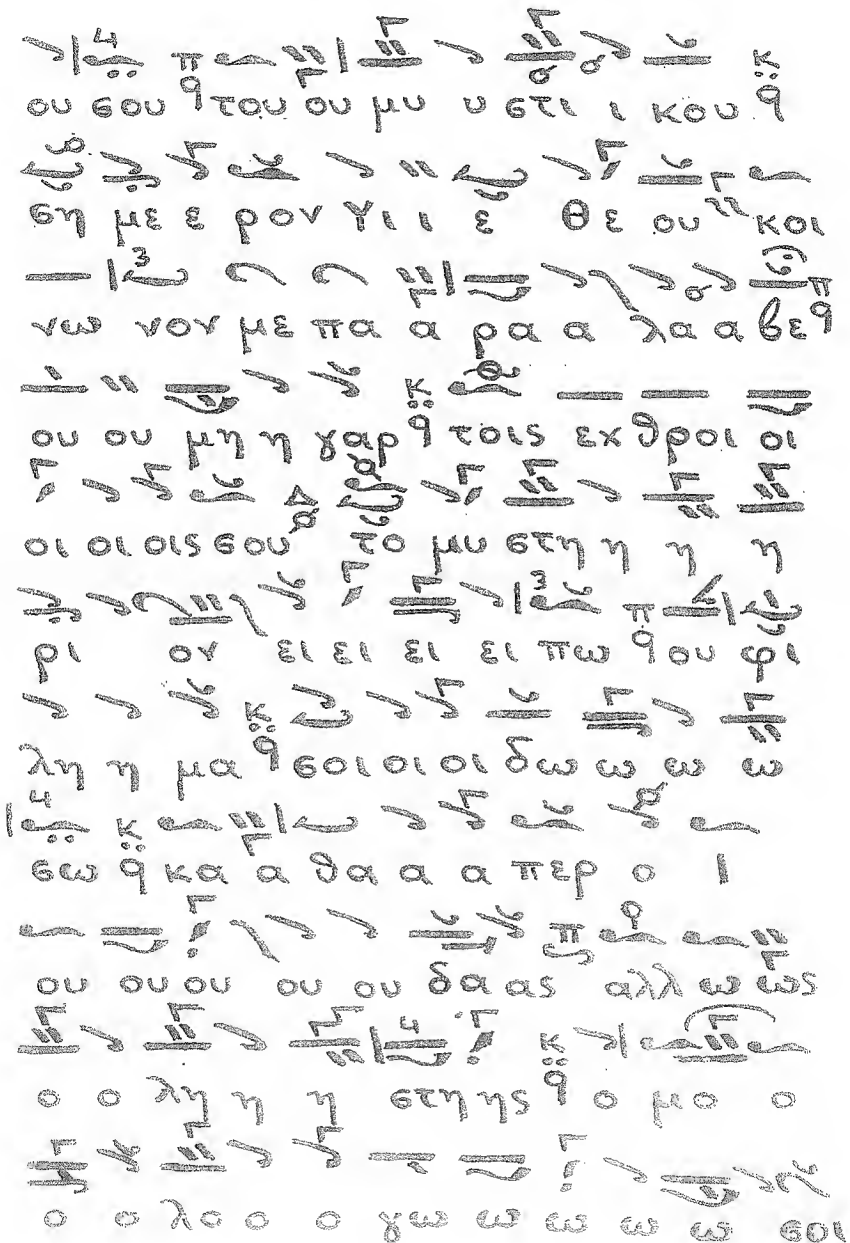 ου σου του ου μυ υ στι ι κου
ση με ε ρον Υι ι ε Θε ου κοι
νω νον με πα α ρα α λα α βε
ου ου μη η γαρ τοις εχ θροι οι
οι οι οις σου το μυ στη η η η
ρι ον ει ει ει ει πω ου φι
λη η μα σοι οι οι δω ω ω ω
σω κα α θα α α περ ο Ι
ου ου ου ου ου δα ας αλλ ω ως
ο ο λη η η στη ης ο μο ο
ο ο λο ο ο γω ω ω ω ω σοι